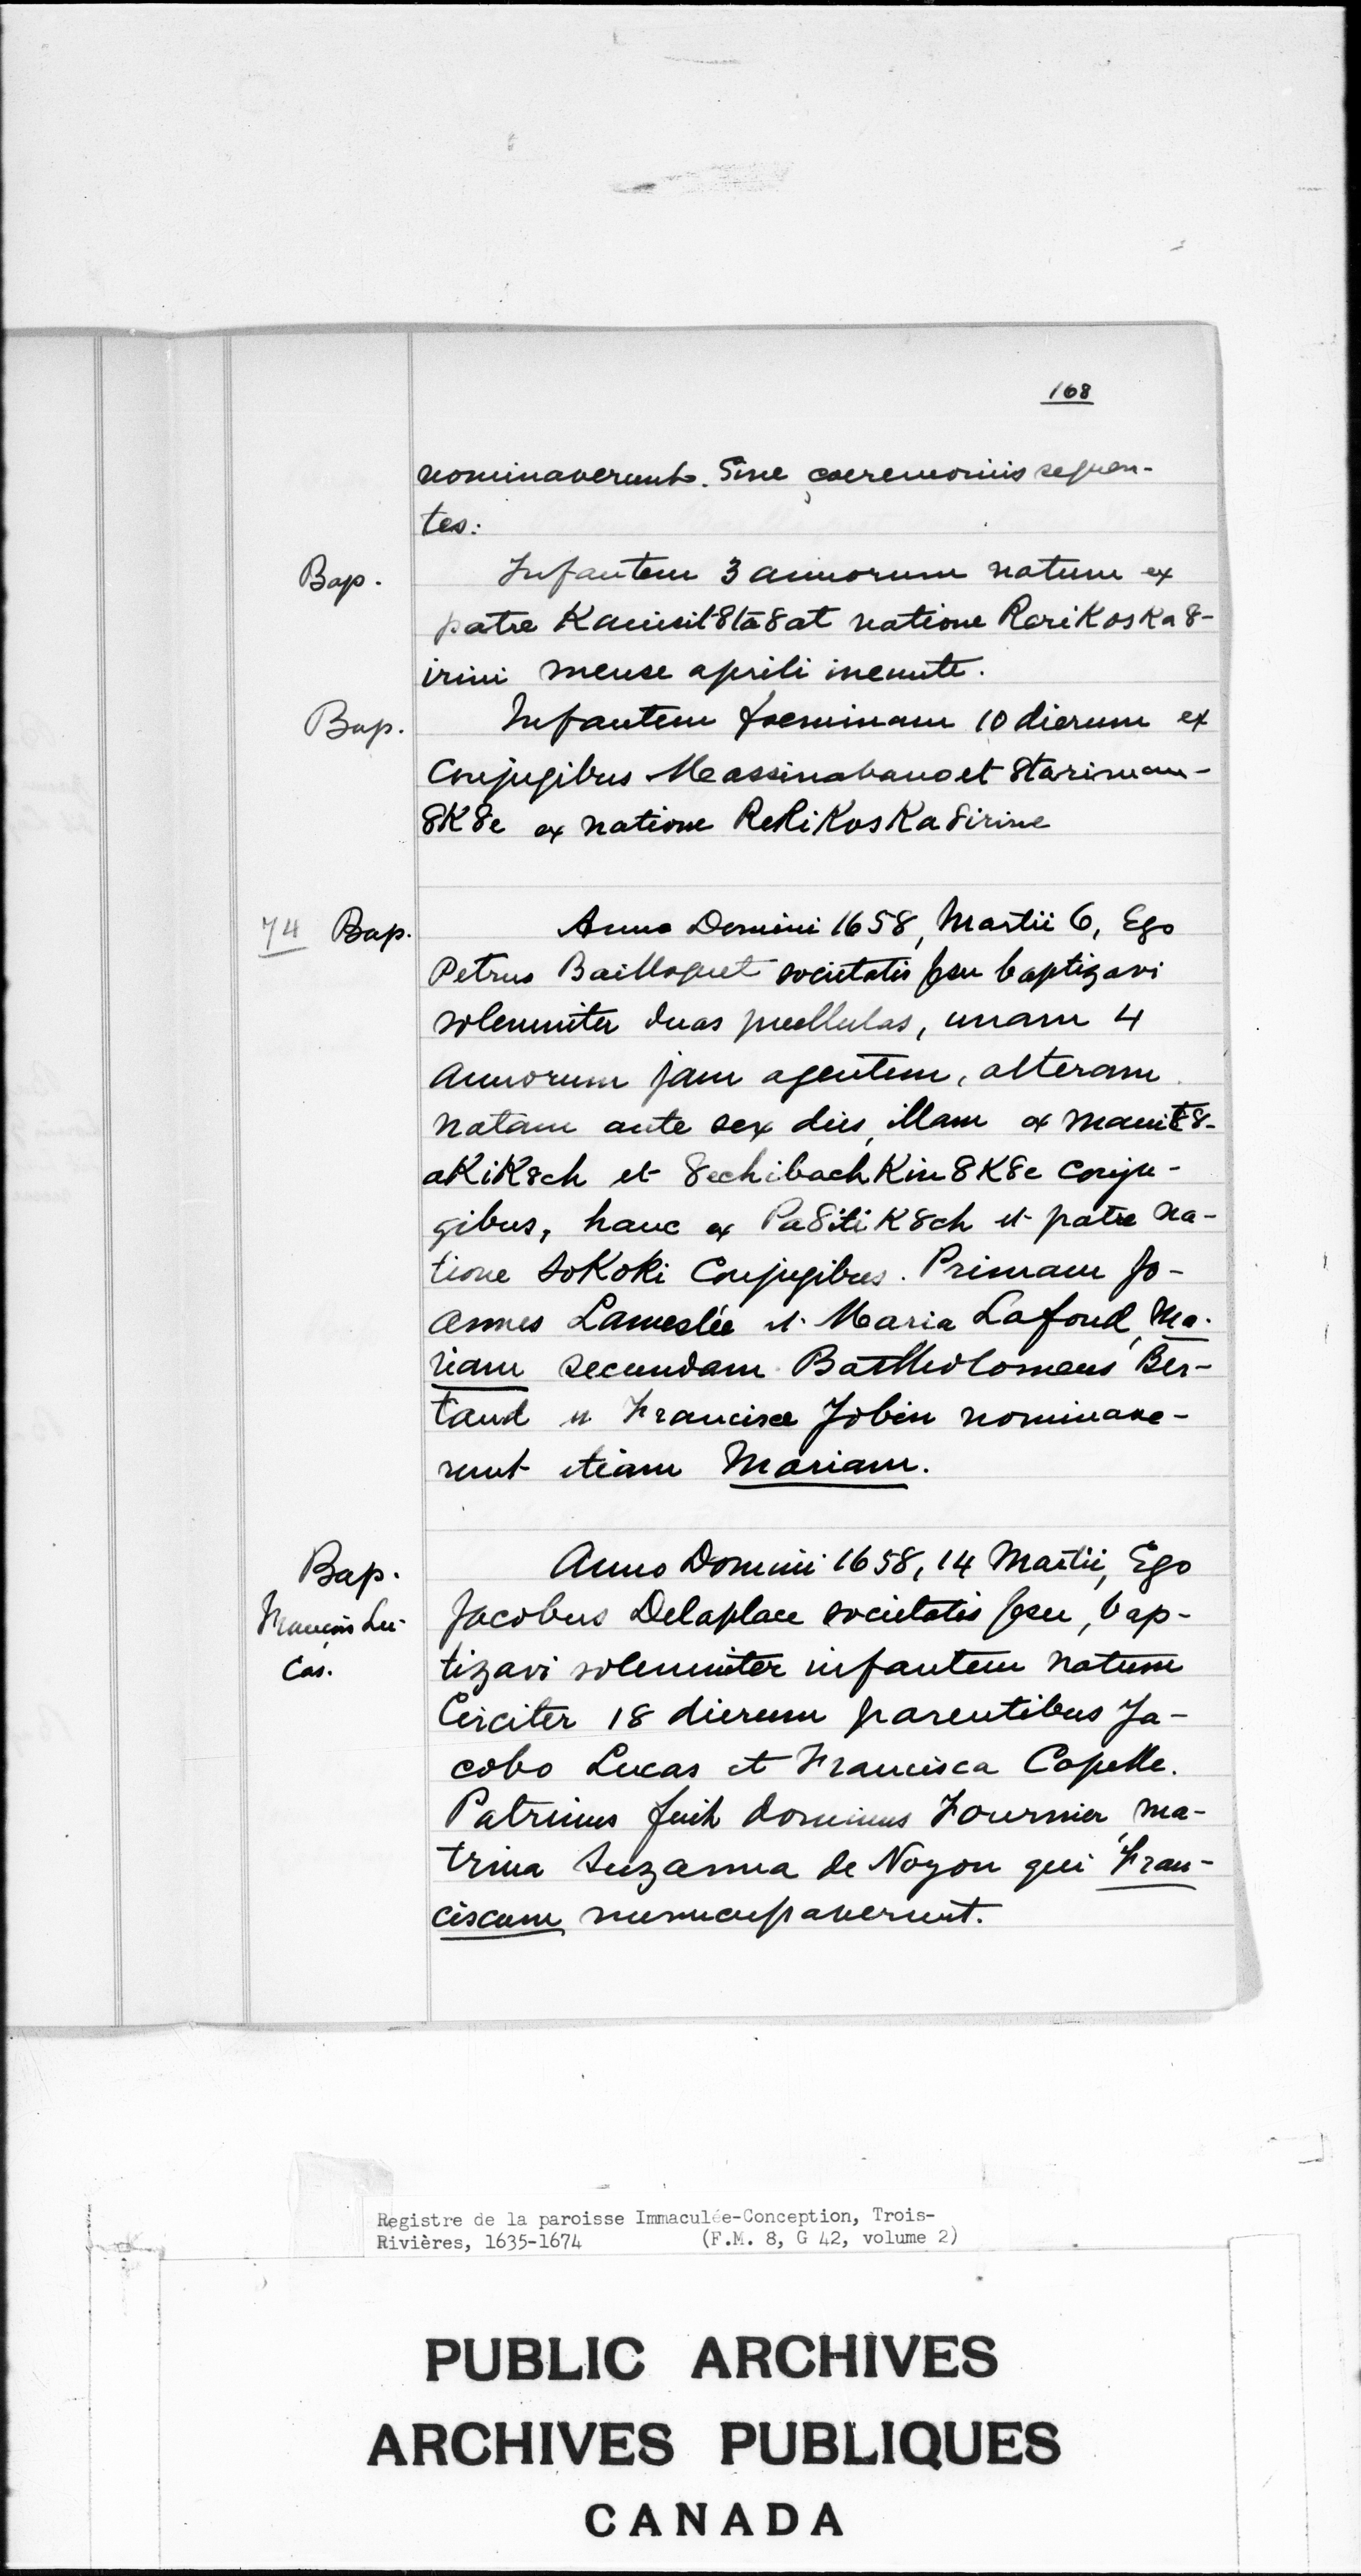 168
nominaverunt. Sine caeremoniis sequen-
tes:
Bap. Infantem 3 annorum natum ex
patre Kaminit8ta8at natione ReriKosKa8-
irini mense aprili ineunte.
Bap. Infantem foeminam 10 dierum ex
Conjugibus Meassinabano et 8tariman-
8K8e ex natione ReKiKosKa8irine
74 Bap. Anno Domini 1658, Martii 6, Ego
Petrus Bailloquet societatis Jesu baptizavi
solemniter duas puellulas, unam 4
annorum jam agentem, alteram
natam ante sex dies, illam ex Manit88-
aKiK8ch et 8echibachKin8K8e conju-
gibus, hanc ex Pa8itiK8ch et patre na-
tione SoKoKi Conjugibus. Primam Jo-
annes Lameslée et Maria Lafond, Ma-
riam secundam Bartholomeus Ber-
taud et Francisca Jobin nominave-
runt etiam Mariam.
Bap. Anno Domini 1658, 14 Martii, Ego
François Lu- Jacobus Delaplace societatis Jesu, bap-
cas. tizavi solemniter infantem natum
Circiter 18 dierum parentibus Ja-
cobo Lucas et Francisca Capelle.
Patrinus fuit dominus Fournier, ma-
trina Suzanna de Noyon qui Fran-
ciscum nuncupaverunt.
Registre de la paroisse Immaculée-Conception, Trois-
Rivières, 1635-1674 (F.M. 8, G 42, volume 2)
PUBLIC ARCHIVES
ARCHIVES PUBLIQUES
CANADA